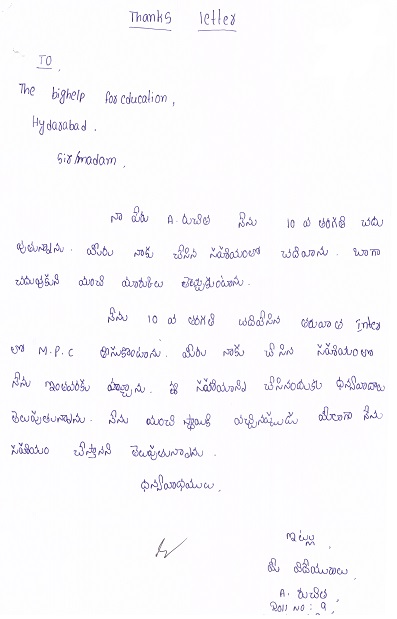 Thanks letter
TO,
The bighelp for education,
Hydarabad.
Sir/madam,
నా పేరు A. రుచిత నేను 10 వ తరగతి చదు
వుతున్నాను. మీరు నాకు చేసిన సహాయంలో చదివాను. బాగా
చదువుకుని మంచి మార్కులు తెచ్చుకుంటాను.
నేను 10 వ తరగతి చదివేసిన తరువాత Inter
లో M.P.C తీసుకొంటాను. మీరు నాకు చేసిన సహాయంలో
నేను ఇంతవరకు వచ్చాను. ఈ సహాయాన్ని చేసినందుకు ధన్యవాదాలు
తెలుపుతున్నాను. నేను మంచి స్థాయికి వచ్చినప్పుడు మీలాగా నేను
సహాయం చేస్తానని తెలుపుతున్నాను.
ధన్యవాదములు,
ఇట్లు,
మీ విదేయురాలు,
A. రుచిత,
Roll NO: 9,